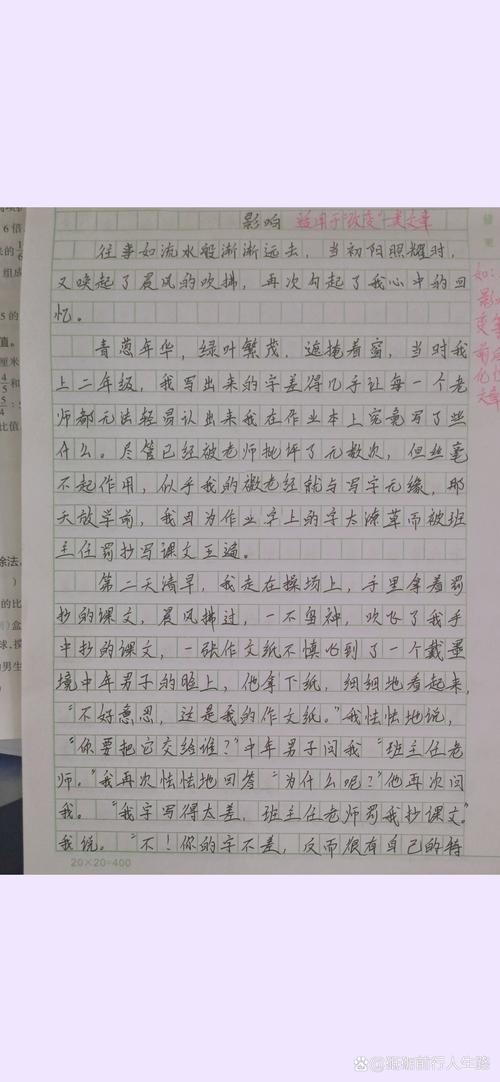 影响 适用于“改变”一类文章
往事如流水般渐渐远去，当初阳照耀时，
又唤起了晨风的吹拂，再次勾起了我心中的回
忆。
青葱年华，绿叶繁茂，遮掩着窗，当时我
上二年级，我写出来的字差得几乎让每一个老
师都无法轻易认出来我在作业本上究竟写了些
什么。尽管已经被老师批评了无数次，但丝毫
不起作用，似乎我的神经就与写字无缘，那
天放学前，我因为作业字上的字太潦草而被班
主任罚抄写课文五遍。
第二天清早，我走在操场上，手里拿着罚
抄的课文，晨风拂过，一不留神，吹飞了我手
中抄的课文，一张作文纸不慎飞到了一个戴墨
镜中年男子的脸上，他拿下纸，细细地看起来，
“不好意思，这是我的作文纸。”我怯怯地说，
“你要把它交给谁？”中年男子问我“班主任老
师。”我再次怯怯地回答“为什么呢？”他再次问
我。“我字写得太差，班主任老师罚我抄课文”
我说。“不！你的字不差，反而很有自己的特
20×20=400
如：
影
变
前后
化
文章
6倍
的1/6
组成
5的
值。
厘米
4/5和
5/4:
比值
除法，
）
的比
盒
球，摸
男生